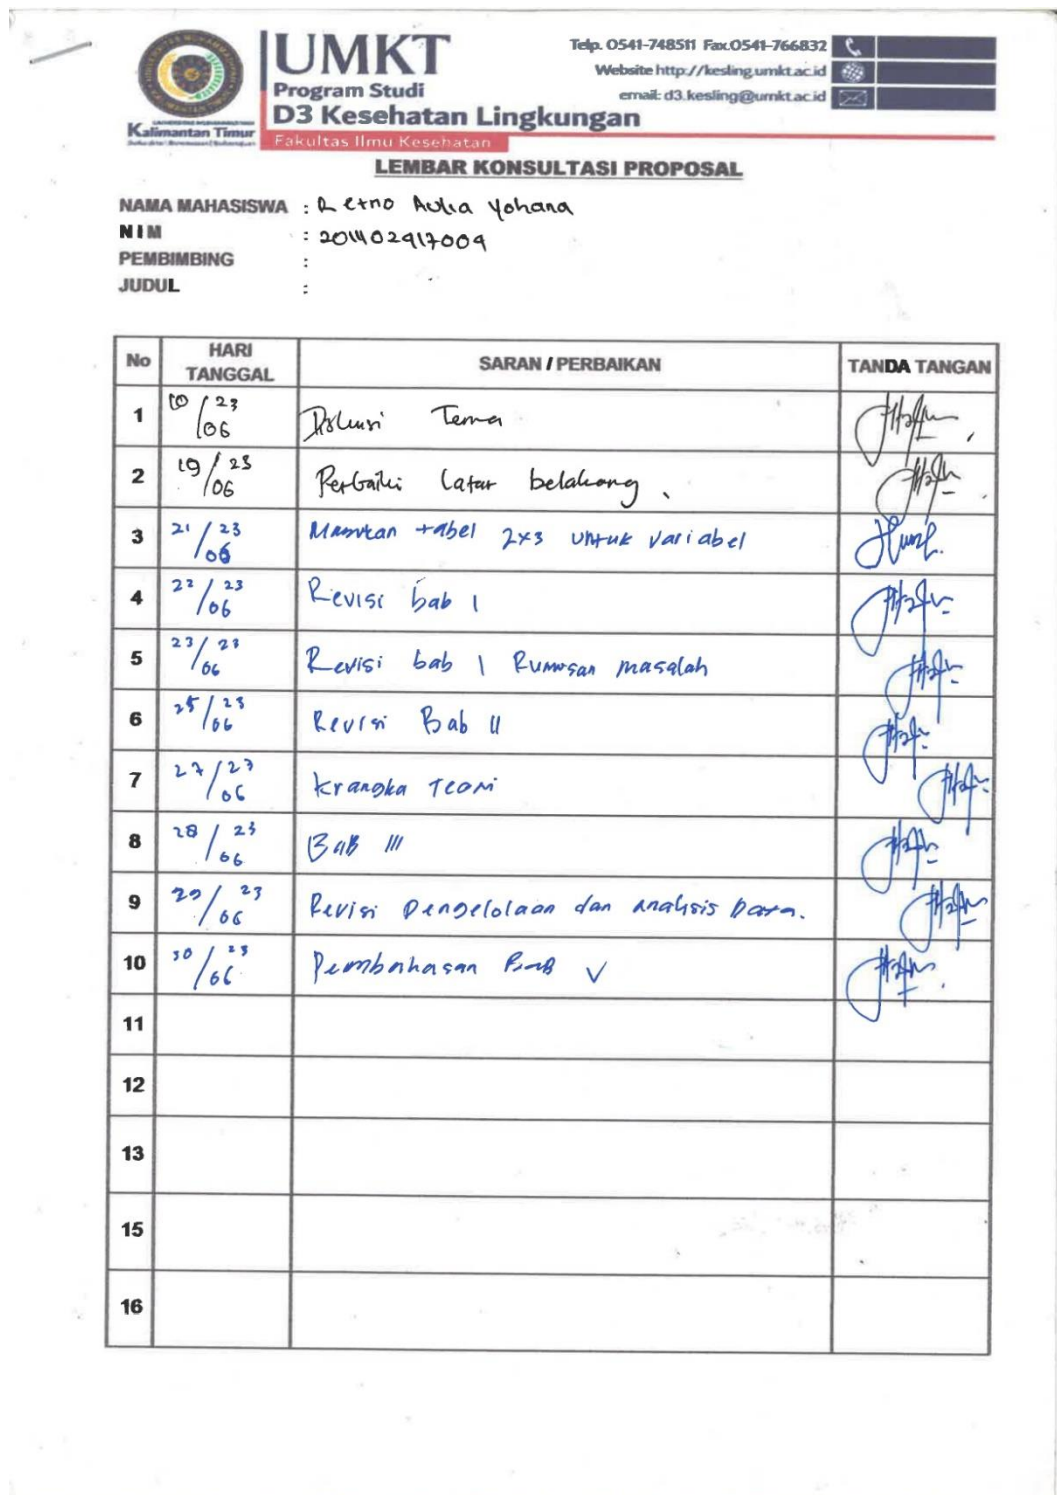 UMKT
Program Studi
D3 Kesehatan Lingkungan
Fakultas Ilmu Kesehatan
Kalimantan Timur
Telp. 0541-748511 Fax.0541-766832
Website http://kesling.umkt.ac.id
email: d3.kesling@umkt.ac.id
LEMBAR KONSULTASI PROPOSAL
NAMA MAHASISWA : Retno Aulia Yohana
NIM : 2011102417004
PEMBIMBING :
JUDUL :
No HARI TANGGAL SARAN / PERBAIKAN TANDA TANGAN
1 10/23 06 Diskusi Tema
2 19/23 06 Perbaiki Latar belakang.
3 21/23 06 Masukan tabel 2x3 untuk variabel
4 22/23 06 Revisi bab 1
5 23/23 06 Revisi bab 1 Rumusan masalah
6 25/23 06 Revisi Bab II
7 27/23 06 krangka Teori
8 28/23 06 BAB III
9 29/23 06 Revisi Pengelolaan dan analisis Data.
10 30/23 06 Pembahasan BAB V
11
12
13
15
16